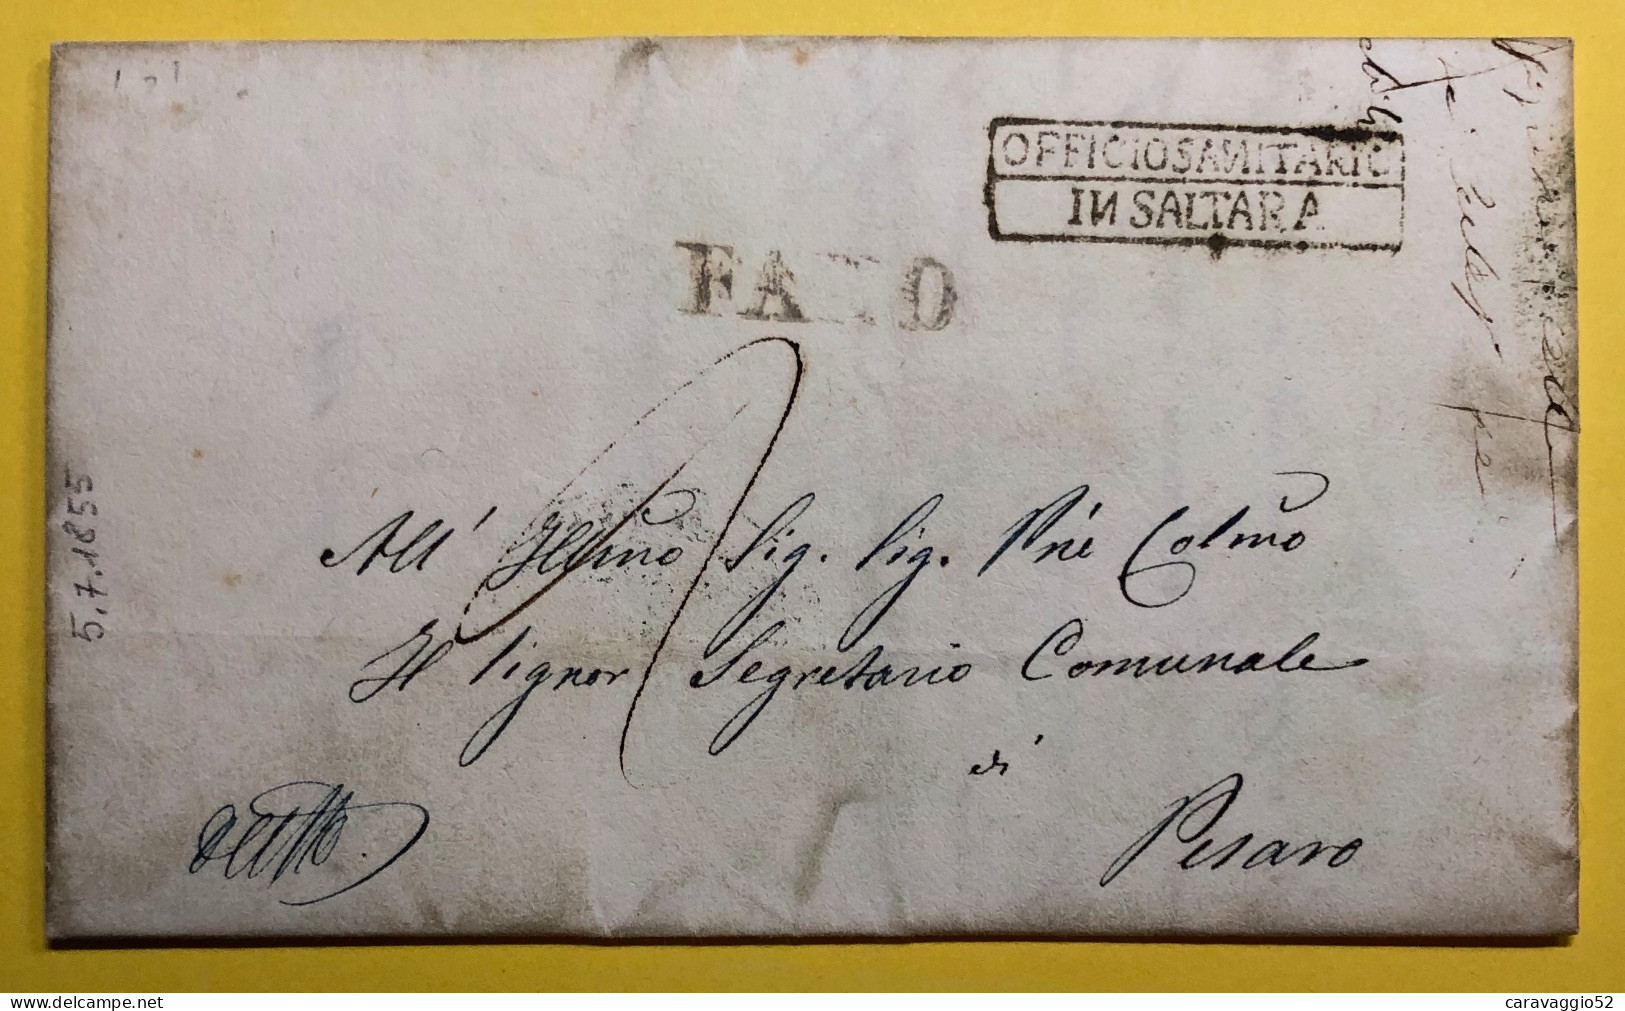 OFFICIO SAИITARIO
IИ SALTARA
FANO
All' Illmo Sig. Sig. Pne Colmo
Il Signor Segretario Comunale
di
Pesaro
5.7.1855
www.delcampe.net
caravaggio52